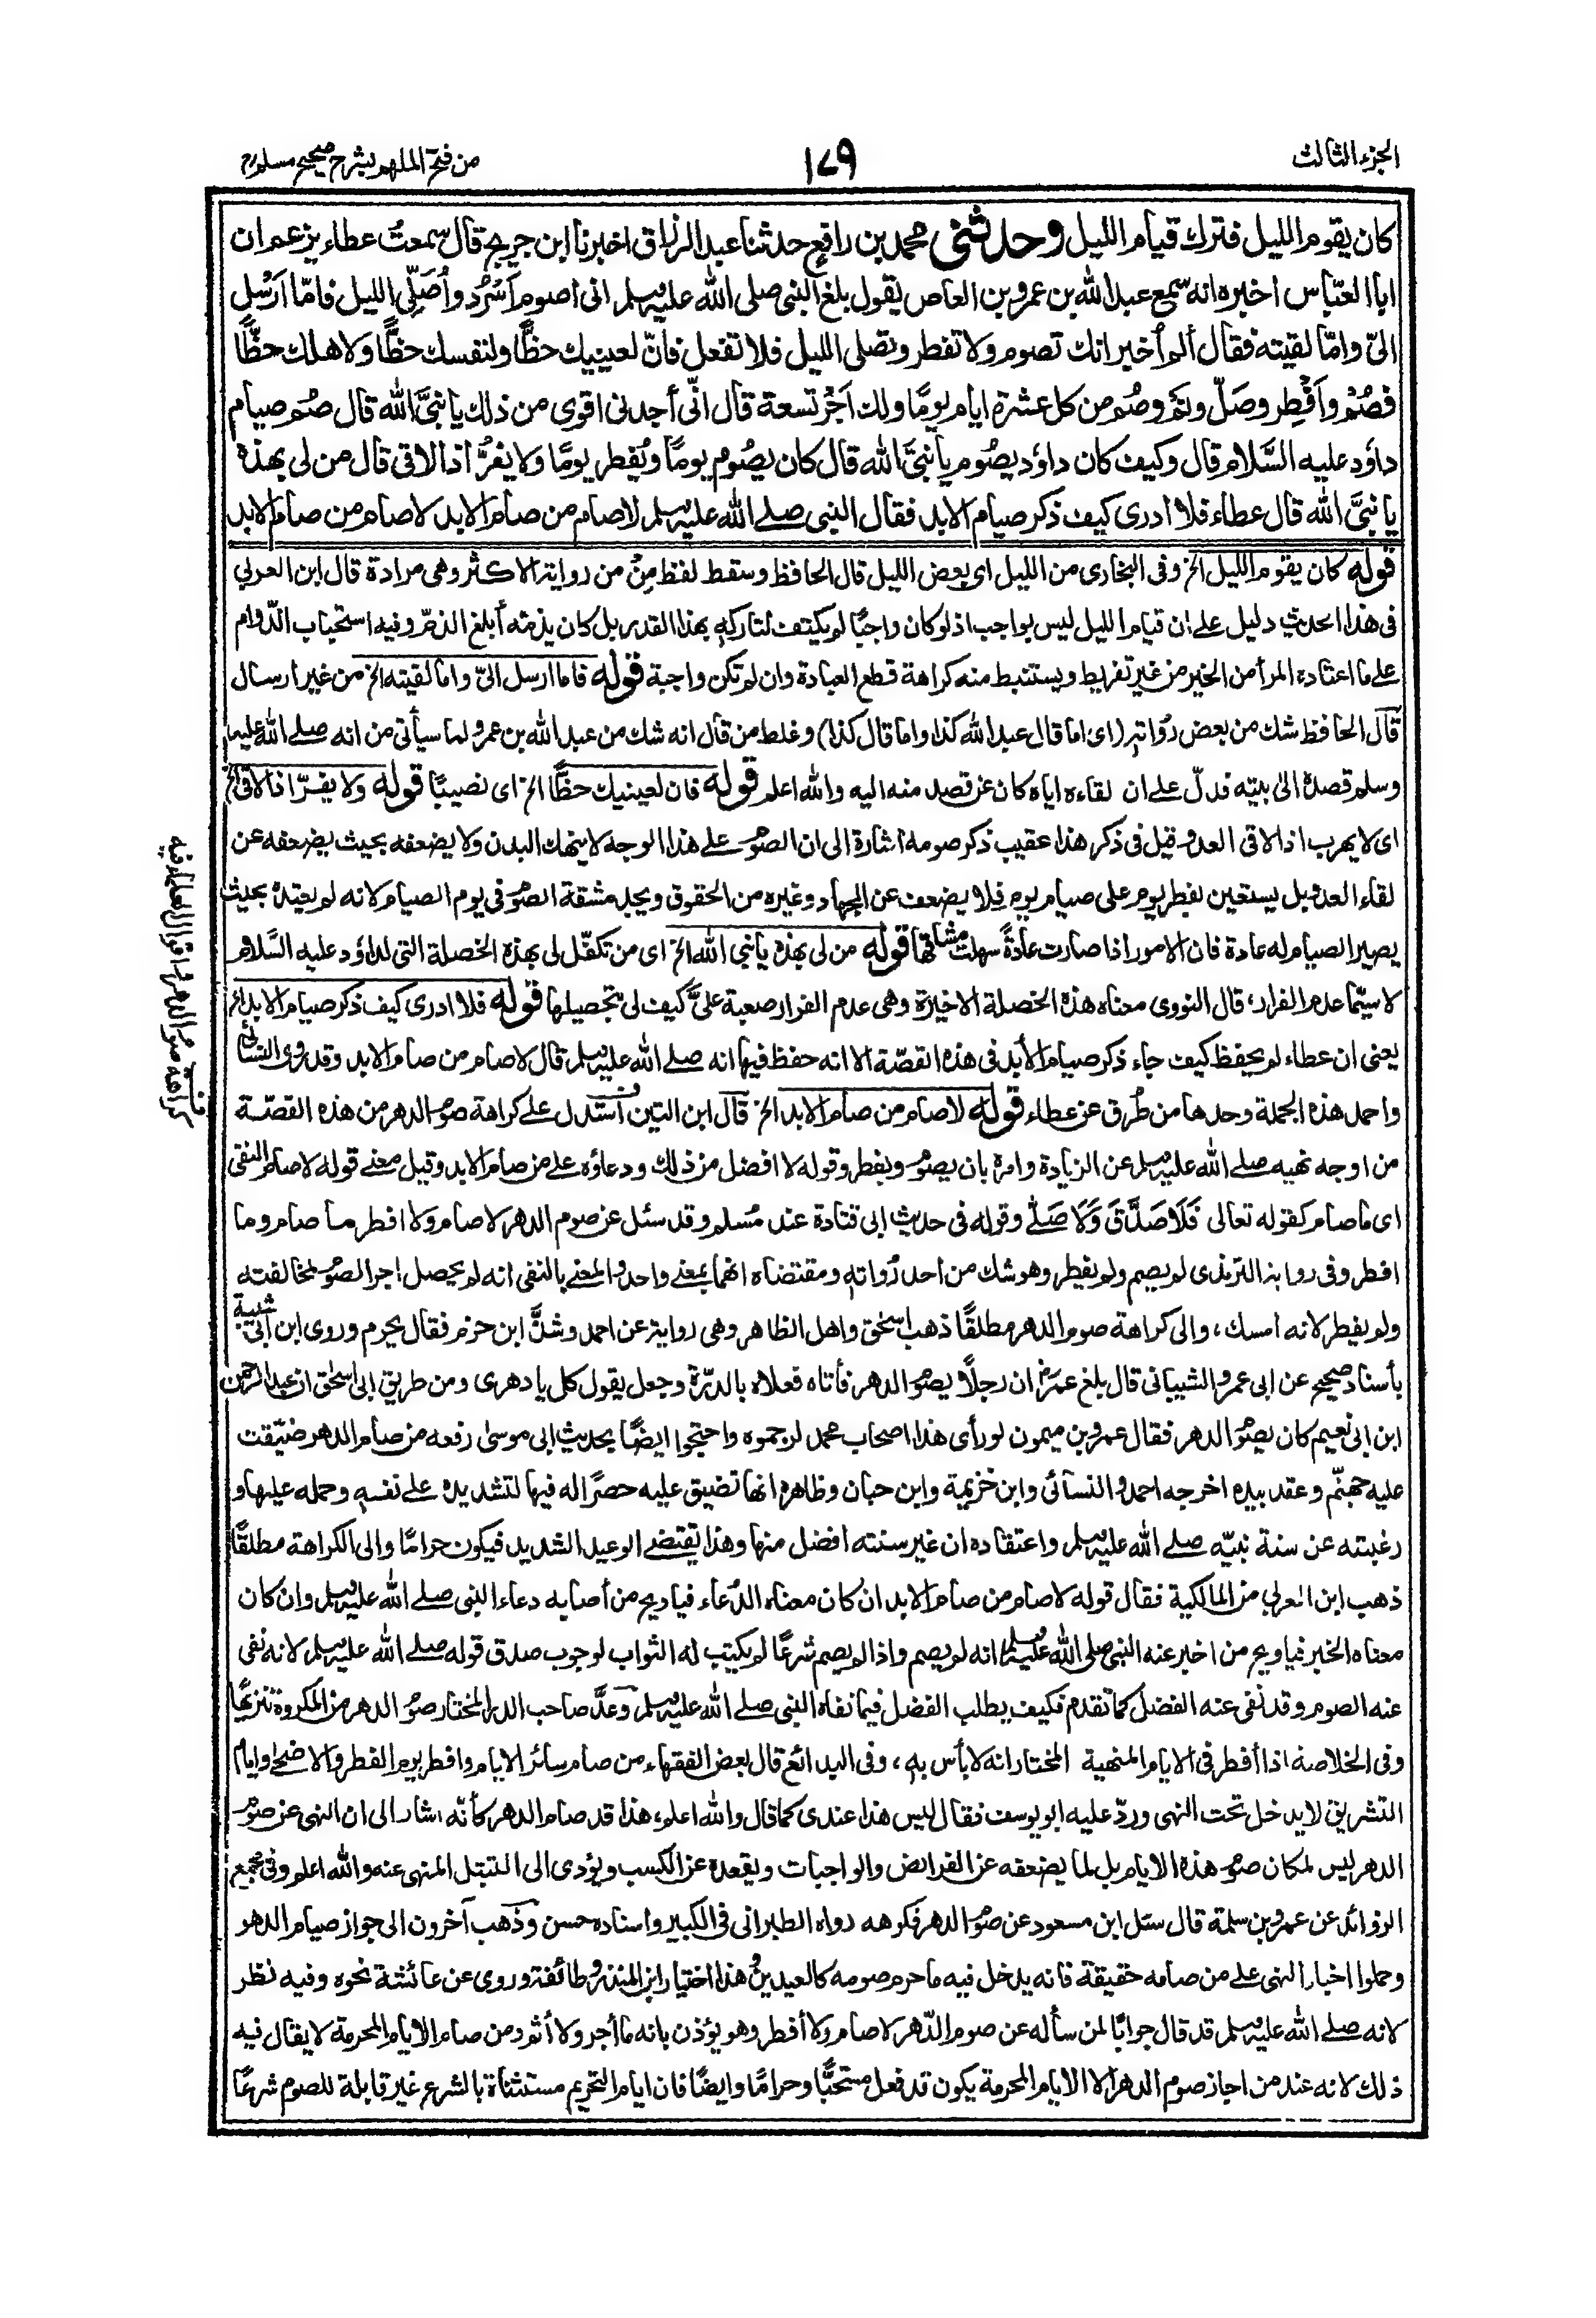 الجزء الثالث
١٧٩
من فتح الملهم بشرح صحيح مسلم
كان يقوم الليل فترك قيام الليل وحدثني محمد بن رافع حدثنا عبد الرزاق اخبرنا ابن جريج قال سمعت عطاء يزعم ان
ابا العبّاس اخبره انه سمع عبد الله بن عمرو بن العاص يقول بلغ النبى صلى الله عليه وسلم انى اصوم اَسْرُد واُصَلِّى الليل فامّا اَرْسَل
الىّ وامّا لقيته فقال ألم اُخبر انك تصوم ولا تفطر وتصلى الليل فلا تفعل فانّ لعينيك حظًّا ولنفسك حظًّا ولاهلك حظًّا
فصُمْ واَفْطِر وصَلّ ونَم وصُم من كل عشرة ايام يومًا ولك اَجْرُ تسعة قال انّى أجدنى اقوى من ذلك يا نبىَّ الله قال صُم صيام
داؤد عليه السَّلام قال وكيف كان داؤد يصُوم يا نبىَّ الله قال كان يصُوم يومًا ويُفطر يومًا ولا يفرُّ اذا لاقى قال من لى بهذه
يا نبىَّ الله قال عطاء فلا ادرى كيف ذكر صيام الابد فقال النبى صلے الله عليه وسلم لا صام من صام الابد لا صام من صام الابد
قوله كان يقوم الليل الخ وفى البخارى من الليل اى بعض الليل قال الحافظ وسقط لفظ مِنْ من رواية الاكثر وهى مرادة قال ابن العربي
فى هذا الحديث دليل على ان قيام الليل ليس بواجب اذ لو كان واجبًا لم يكتف لتاركه بهذا القدر بل كان يذمّه أبلغ الذمّ وفيه استحباب الدّوام
على ما اعتاده المرأ من الخير من غير تفريط ويستنبط منه كراهة قطع العبادة وان لم تكن واجبة قوله فاما ارسل الىّ واما لقيته الخ من غير ارسال
قال الحافظ شك من بعض رُواته (اى اما قال عبد الله كذا واما قال كذا) وغلط من قال انه شك من عبد الله بن عمرو لما سيأتى من انه صلے الله عليه
وسلم قصده الىٰ بيته فدلّ على ان لقاءه اياه كان عن قصد منه اليه والله اعلم قوله فان لعينيك حظًّا الخ اى نصيبًا قوله ولا يفرّ اذا لاقى الخ
اى لا يهرب اذا لاقى العدو قيل فى ذكر هذا عقيب ذكر صومه اشارة الى ان الصوم على هذا الوجه لا ينهك البدن ولا يضعفه بحيث يضعفه عن
لقاء العدو بل يستعين بفطر يوم على صيام يوم فلا يضعف عن الجهاد وغيره من الحقوق ويجد مشقة الصوم فى يوم الصيام لانه لم يعتده بحيث
يصير الصيام له عادة فان الامور اذا صارت عادةً سهلت مشاقّها قوله من لى بهذه يا نبي الله الخ اى من تكفّل لى بهذه الخصلة التى لداؤد عليه السَّلام
لا سيّما عدم الفرار، قال النووى معناه هذه الخصلة الاخيرة وهى عدم الفرار صعبة علىَّ كيف لى بتحصيلها قوله فلا ادرى كيف ذكر صيام الابد الخ
يعنى ان عطاء لم يحفظ كيف جاء ذكر صيام الأبد فى هذه القصّة الا انه حفظ فيها انه صلے الله عليه وسلم قال لا صام من صام الابد وقد روى النسائى
واحمد هذه الجملة وحدها من طُرق عن عطاء قوله لا صام من صام الابد الخ قال ابن التين استدل على كراهة صوم الدهر من هذه القصّة
من اوجه نهيه صلے الله عليه وسلم عن الزيادة وامره بان يصوم ويفطر وقوله لا افضل من ذلك ودعاؤه على من صام الابد وقيل معنے قوله لا صام النفى
اى ما صام كقوله تعالى فَلَا صَدَّقَ وَلَا صَلّٰے وقوله فى حديث ابى قتادة عند مُسلم وقد سئل عن صوم الدهر لا صام ولا افطر ما صام وما
افطر وفى رواية الترمذى لم يصم ولم يفطر وهو شك من احد رُواته ومقتضاه انهما بمعنے واحد والمعنے بالنفى انه لم يحصل اجر الصوم لمخالفته
ولم يفطر لانه امسك، والى كراهة صوم الدهر مطلقًا ذهب اسحٰق واهل الظاهر وهى رواية عن احمد وشذَّ ابن حزم فقال يحرم وروى ابن ابى شيبة
بأسناد صحيح عن ابى عمرو الشيبانى قال بلغ عمر ان رجلًا يصوم الدهر فأتاه فعلاه بالدرّة وجعل يقول كل يا دهرى ومن طريق ابى اسحٰق ان عبد الرحمن
ابن ابى نعيم كان يصوم الدهر فقال عمرو بن ميمون لو رأى هذا اصحاب محمد لرجموه واحتجوا ايضًا بحديث ابى موسىٰ رفعه من صام الدهر ضيّقت
عليه جهنّم وعقد بيده اخرجه احمد والنسائى وابن خزيمة وابن حبان وظاهره انها تضيق عليه حصرًا له فيها لتشديده على نفسه وحمله عليها و
رغبته عن سنة نبيّه صلے الله عليه وسلم واعتقاده ان غير سنته افضل منها وهذا يقتضے الوعيد الشديد فيكون حرامًا والى الكراهة مطلقًا
ذهب ابن العربي من المالكية فقال قوله لا صام من صام الابد ان كان معناه الدُعاء فيا ويح من أصابه دعاء النبى صلے الله عليه وسلم وان كان
معناه الخبر فيا ويح من اخبر عنه النبى صلى الله عليه وسلم انه لم يصم واذا لم يصم شرعًا لم يكتب له الثواب لوجوب صدق قوله صلے الله عليه وسلم لانه نفى
عنه الصوم وقد نفى عنه الفضل كما تقدم فكيف يطلب الفضل فيما نفاه النبى صلے الله عليه وسلم وعدَّ صاحب الدر المختار صوم الدهر من المكروه تنزيهًا
وفى الخلاصة اذا أفطر فى الايام المنهية المختار انه لا بأس به، وفى البدائع قال بعض الفقهاء من صام سائر الايام وافطر يوم الفطر والاضحٰے وايام
التشريق لا يدخل تحت النهى وردّ عليه ابو يوسف فقال ليس هذا عندى كما قال والله اعلم، هذا قد صام الدهر كأنّه اشار الى ان النهى عن صوم
الدهر ليس لمكان صوم هذه الايام بل لما يضعفه عن الفرائض والواجبات ويقعده عن الكسب ويؤدى الى التبتل المنهى عنه والله اعلم وفى مجمع
الزوائد عن عمرو بن سلمة قال سئل ابن مسعود عن صوم الدهر فكرهه رواه الطبرانى فى الكبير واسناده حسن وذهب آخرون الى جواز صيام الدهر
وحملوا اخبار النهى على من صامه حقيقة فانه يدخل فيه ما حرم صومه كالعيدين وهذا اختيار ابن المنذر وطائفة وروى عن عائشة نحوه وفيه نظر
لانه صلے الله عليه وسلم قد قال جوابًا لمن سأله عن صوم الدّهر لا صام ولا أفطر وهو يؤذن بانه ما أجر ولا أثم ومن صام الايام المحرمة لا يقال فيه
ذلك لانه عند من اجاز صوم الدهر الا الايام المحرمة يكون قد فعل مستحبًّا وحرامًا وايضًا فان ايام التحريم مستثناة بالشرع غير قابلة للصوم شرعًا
كراهة صوم الدهر واقوال العلماء فيه